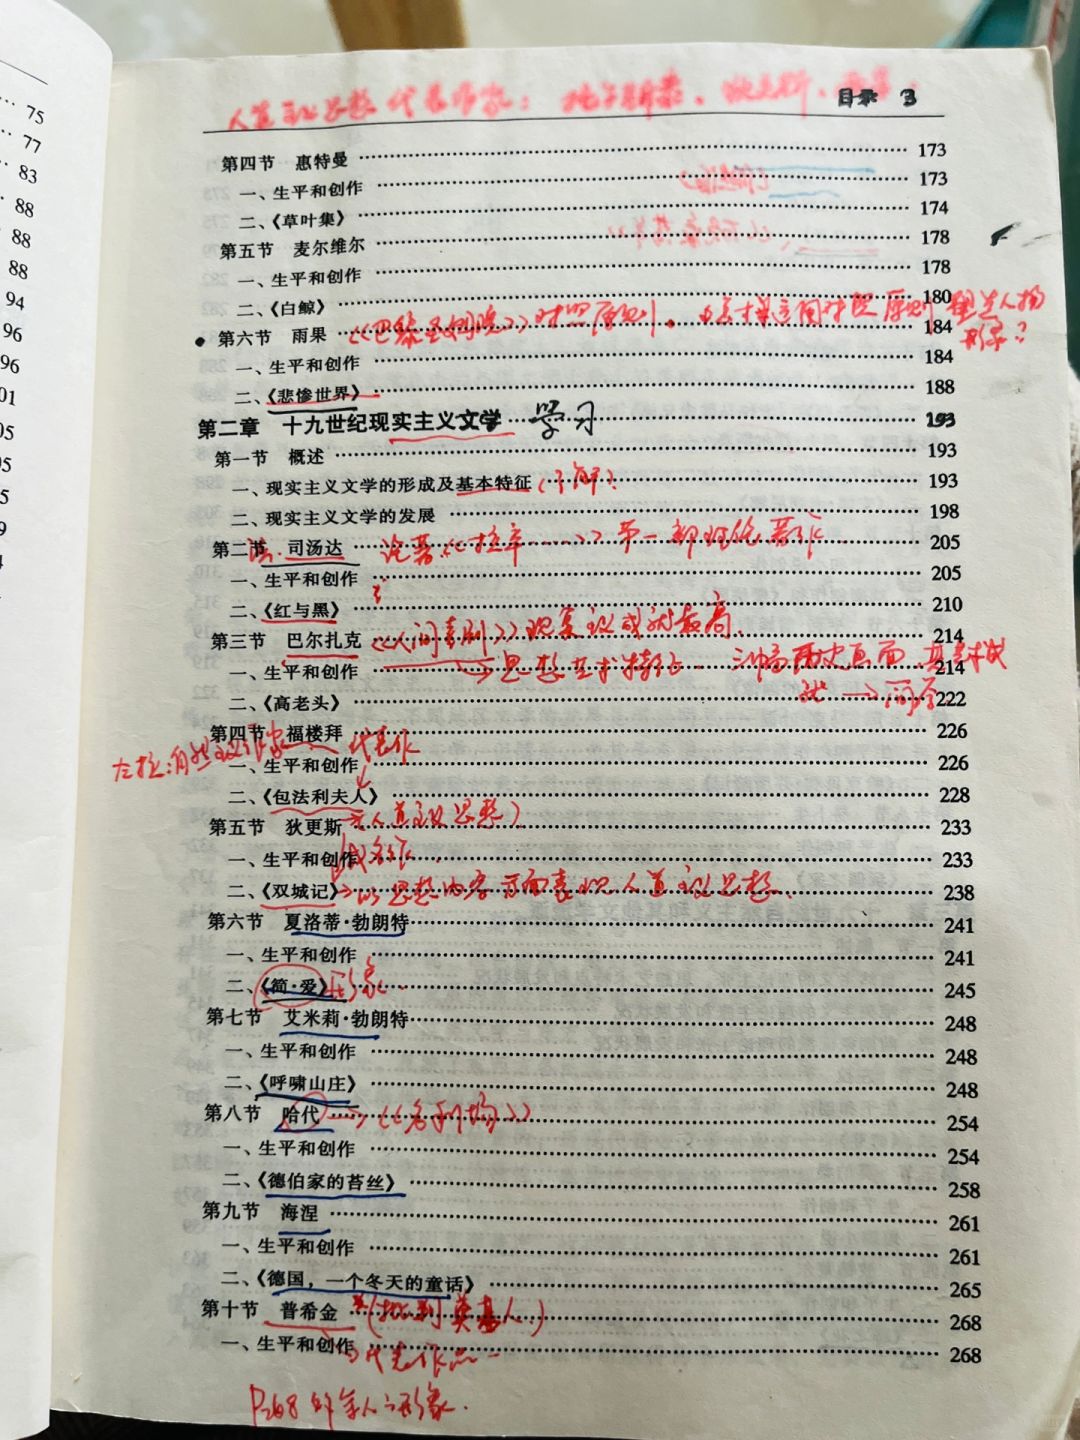 75
77
83
88
88
88
94
96
96
01
05
95
5
9
人道主义思想 代表作家：
目录 3
第四节 惠特曼 173
一、生平和创作 173
二、《草叶集》 174
第五节 麦尔维尔 178
一、生平和创作 178
二、《白鲸》 180
第六节 雨果 《巴黎圣母院》对照原则。 184
塑造人物形象？
一、生平和创作 184
二、《悲惨世界》 188
第二章 十九世纪现实主义文学 学习 193
第一节 概述 193
一、现实主义文学的形成及基本特征（了解） 193
二、现实主义文学的发展 198
第二节 司汤达 论著《拉辛……》第一部理论著作 205
一、生平和创作 205
二、《红与黑》 210
第三节 巴尔扎克 《人间喜剧》现实主义成就最高. 214
一、生平和创作 →思想艺术特征 214
二、《高老头》 222
第四节 福楼拜 代表作 226
左拉:自然主义作家
一、生平和创作 226
二、《包法利夫人》 228
第五节 狄更斯 人道主义思想) 233
一、生平和创作 成名作 233
二、《双城记》→以思想内容方面表现人道主义思想. 238
第六节 夏洛蒂·勃朗特 241
一、生平和创作 241
二、《简·爱》形象 245
第七节 艾米莉·勃朗特 248
一、生平和创作 248
二、《呼啸山庄》 248
第八节 哈代 →《名利场》 254
一、生平和创作 254
二、《德伯家的苔丝》 258
第九节 海涅 261
一、生平和创作 261
二、《德国，一个冬天的童话》 265
第十节 普希金 268
一、生平和创作 268
代表作品
P268 的 形象.